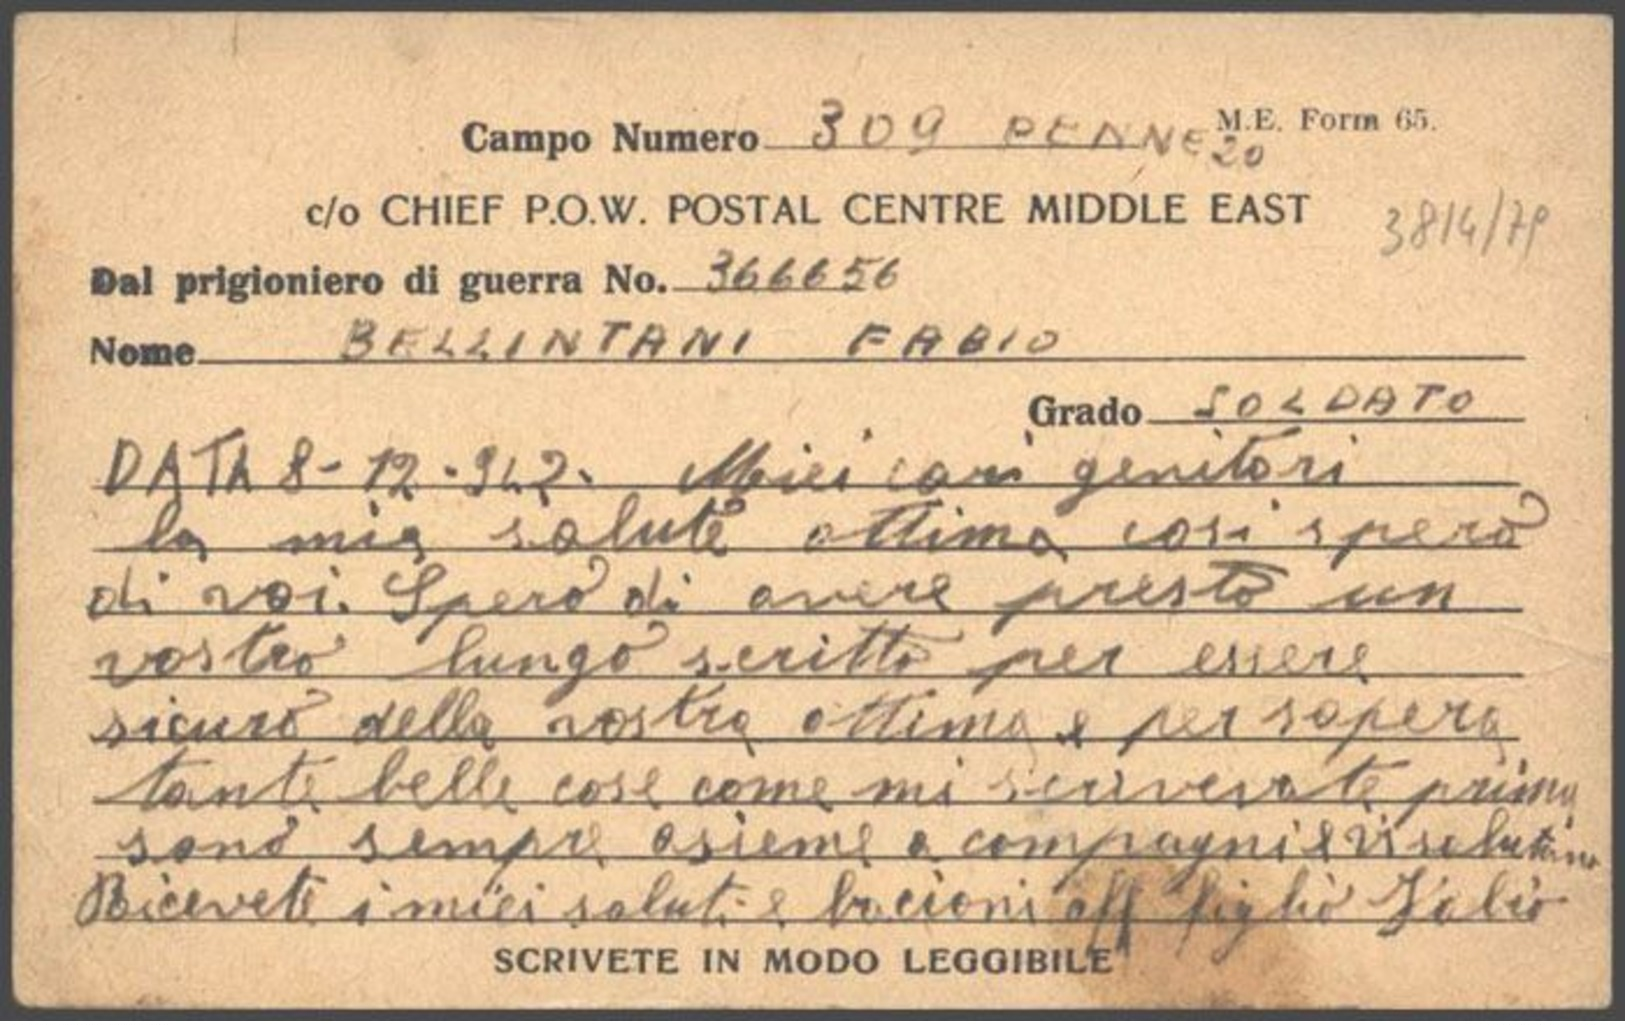 M.E. Form 65.
Campo Numero 309 PENNE 20
c/o CHIEF P.O.W. POSTAL CENTRE MIDDLE EAST
3814/79
Dal prigioniero di guerra No. 366656
Nome BELLINTANI FABIO
Grado SOLDATO
DATA 8-12-942. Miei cari genitori
la mia salute ottima cosi spero
di voi. Spero di avere presto un
vostro lungo scritto per essere
sicuro della vostra ottima e per sapera
tante belle cose come mi scrivevate prima
sono sempre asieme a compagni e vi salutano
Ricevete i miei saluti e bacioni aff figlio Fabio
SCRIVETE IN MODO LEGGIBILE